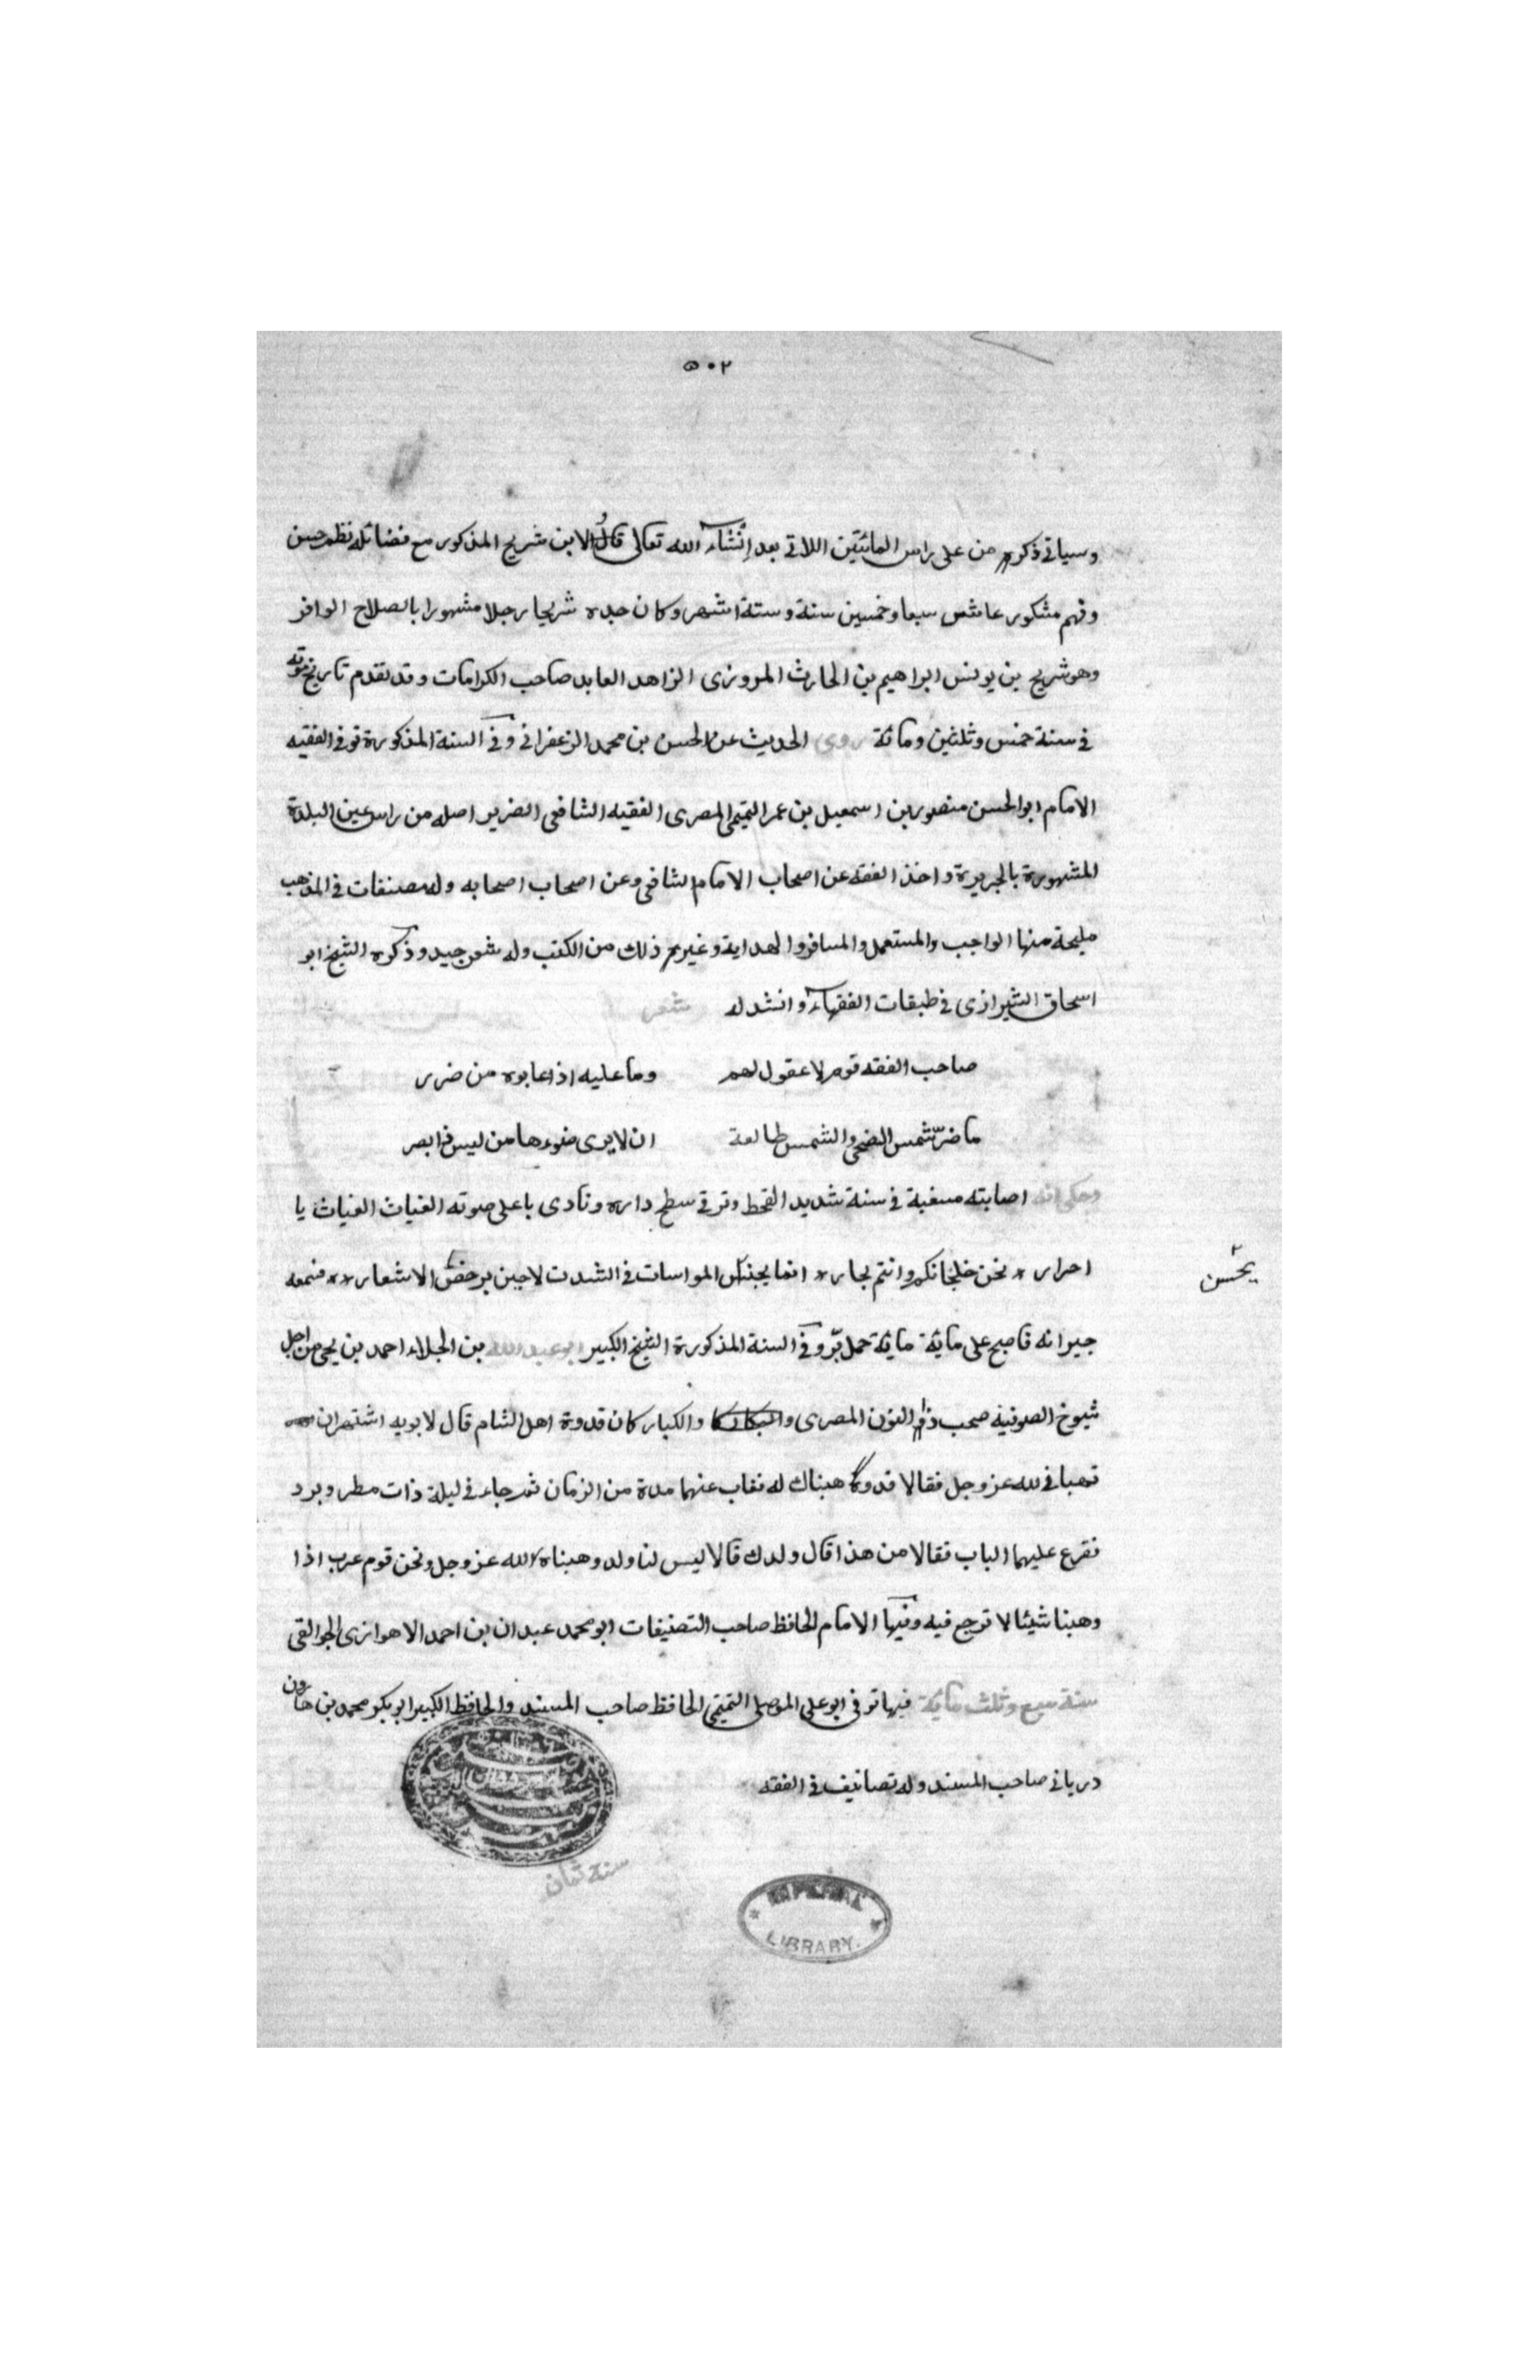 ٥٠٢
وسياتى ذكره من على راس المائتين اللاتى بعد إنشاء الله تعالى قال الابن شريح المذكور مع فضائله نظم حسن
وفهم مشكور عاش سبعا وخمسين سنة وستة اشهر وكان جده شريحا رجلا مشهورا بالصلاح الوافر
وهو شريح بن يونس ابراهيم بن الحارث المروزى الزاهد العابد صاحب الكرامات وقد تقدم تاريخ موته
فى سنة خمس وثلثين ومائة روى الحديث عن الحسن بن محمد الزعفرانى وفى السنة المذكورة توفى الفقيه
الامام ابو الحسن منصور بن اسمعيل بن عمر التميمى المصرى الفقيه الشافعى الضرير اصله من راس عين البلدة
المشهورة بالجريرة واخذ الفقه عن اصحاب الامام الشافعى وعن اصحاب اصحابه وله مصنفات فى المذهب
مليحة منها الواجب والمستعمل والمسافر والهداية وغيره ذلك من الكتب وله شعر جيد وذكره الشيخ ابو
اسحاق الشيرازى فى طبقات الفقهاء وانشد له شعر
صاحب الفقه قوم لا عقول لهم وما عليه اذا عابوه من ضرر
ما ضرّ شمس الضحى والشمس طالعة ان لا يرى ضوءها من ليس ذا بصر
وحكى انه اصابته مسغبة فى سنة شديد القحط وترقى سطح داره ونادى باعلى صوته الغياث الغياث يا
احرار * نحن خلجانكم وانتم بحار * انما المواسات فى الشدت لا حين برخص الاشعار ** فسمعه
يحسن
جيرانه فاصبح على مائة حمل برّ وفى السنة المذكورة الشيخ الكبير ابو عبد الله بن الجلاء احمد بن يحيى من اجل
شيوخ الصوفية صحب ذا النون المصرى والكبار كان قدوة اهل الشام قال لابويه اشتهى ان
تهبانى لله عز وجل فقالا قد وهبناك له فغاب عنهما مدة من الزمان ثم جاء فى ليلة ذات مطر وبرد
فقرع عليهما الباب فقالا من هذا قال ولدك قالا ليس لنا ولد وهبناه لله عز وجل ونحن قوم عرب اذا
وهبنا شيئا لا نرجع فيه وفيها الامام الحافظ صاحب التصنيفات ابو محمد عبدان بن احمد الاهوازى الجوالقى
سنة سبع وثلث مائة فيها توفى ابو على الموصلى التميمى الحافظ صاحب المسند والحافظ الكبير ابو بكر محمد بن هارون
دريانى صاحب المسند وله تصانيف فى الفقه
سنة ثمان
IMPERIAL LIBRARY.